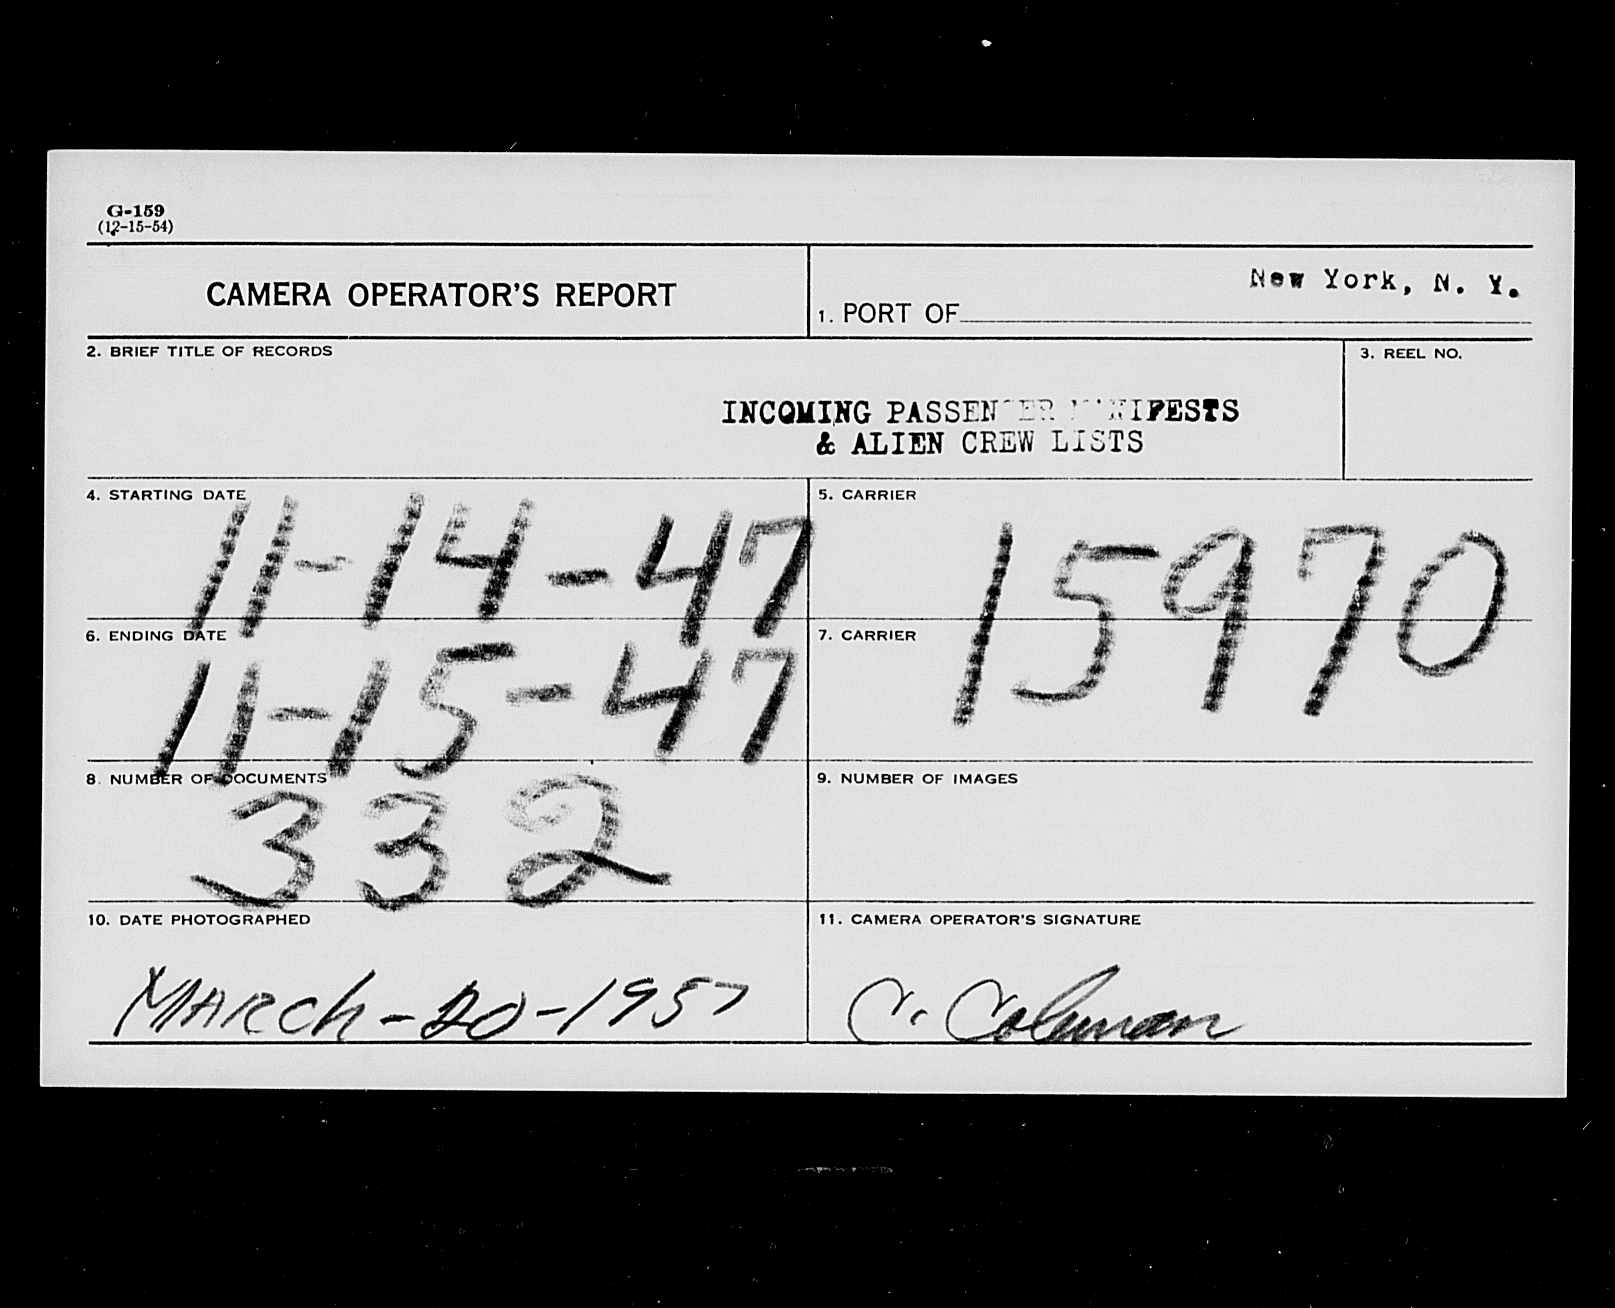 G-159
(12-15-54)
CAMERA OPERATOR'S REPORT
New York, N. Y.
1. PORT OF
2. BRIEF TITLE OF RECORDS
3. REEL NO.
INCOMING PASSENGER MANIFESTS
& ALIEN CREW LISTS
4. STARTING DATE
11-14-47
5. CARRIER
15970
6. ENDING DATE
11-15-47
7. CARRIER
8. NUMBER OF DOCUMENTS
332
9. NUMBER OF IMAGES
10. DATE PHOTOGRAPHED
MARCh-20-1957
11. CAMERA OPERATOR'S SIGNATURE
C. Coleman